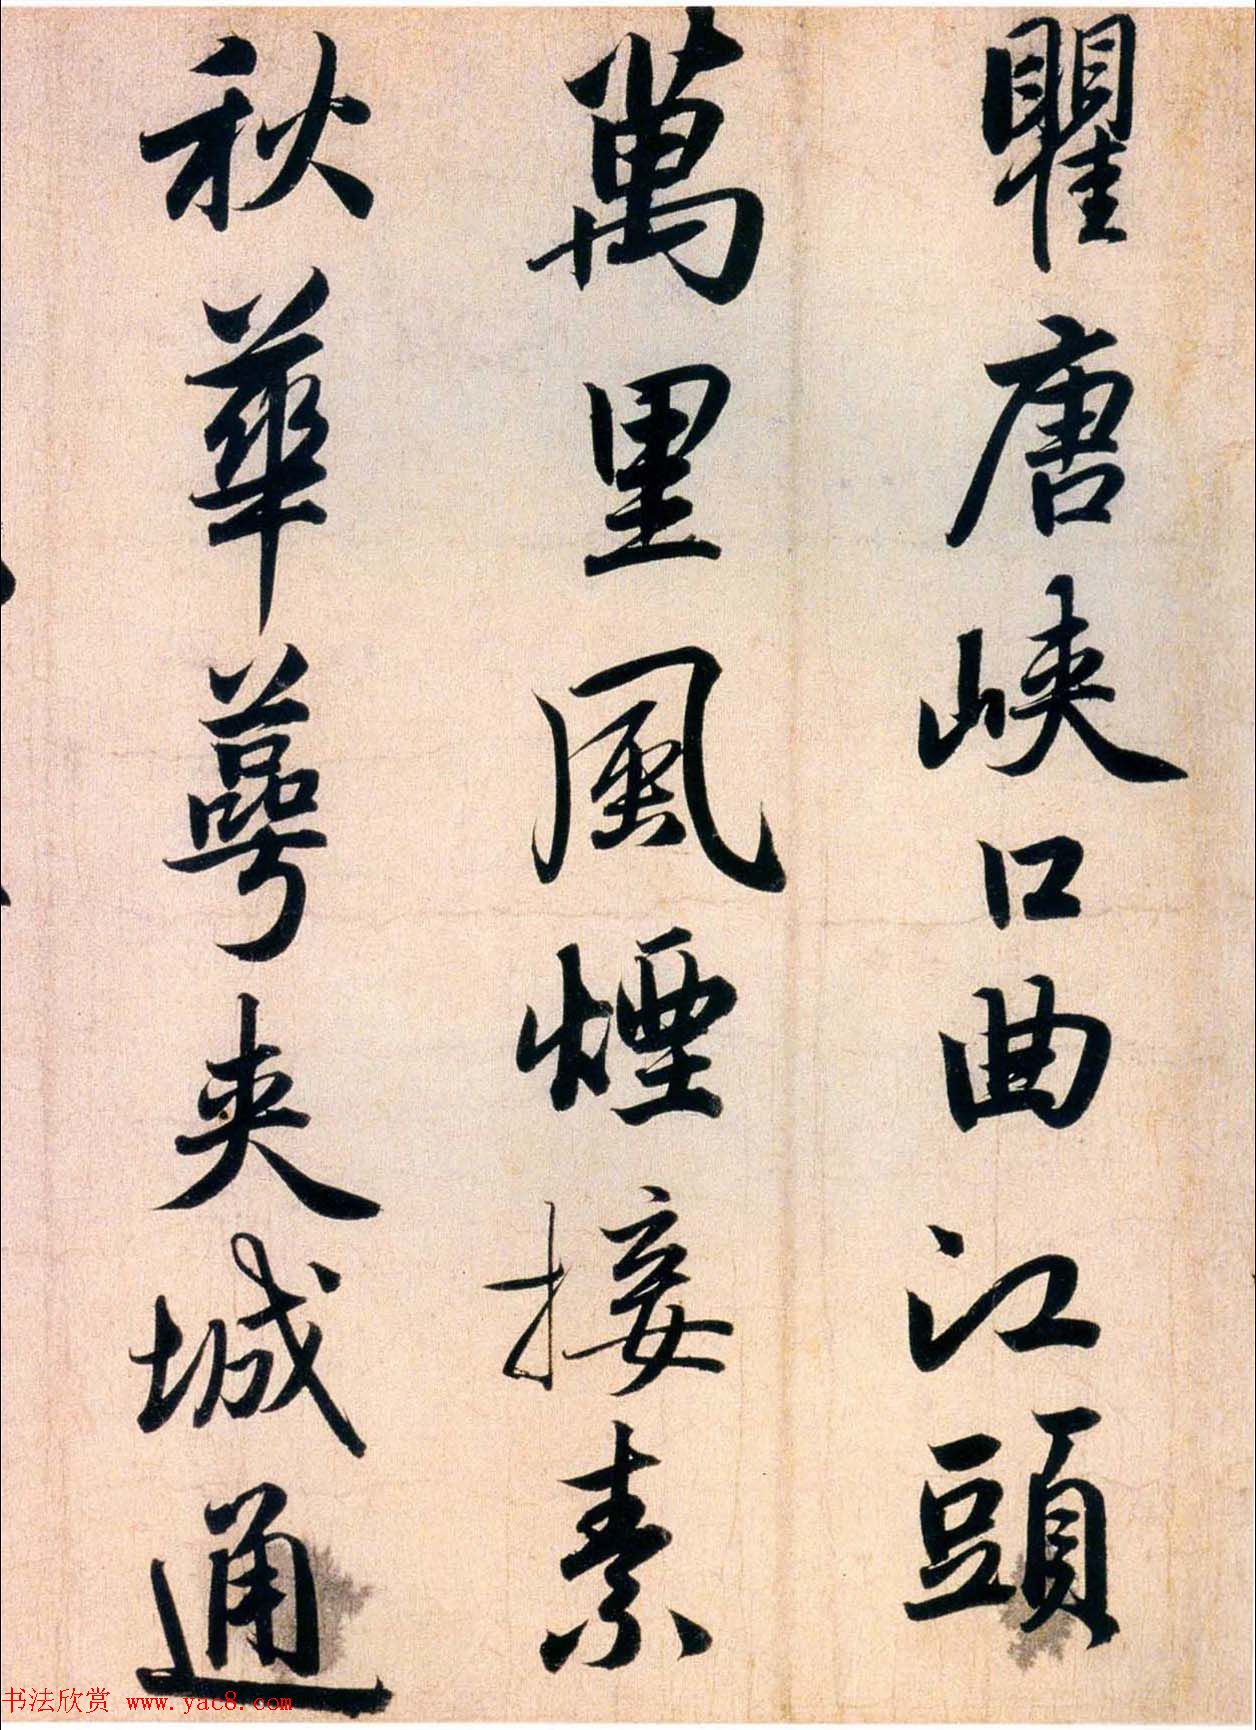 瞿唐峽口曲江頭
萬里風煙接素
秋華萼夾城通
书法欣赏 www.yac8.com